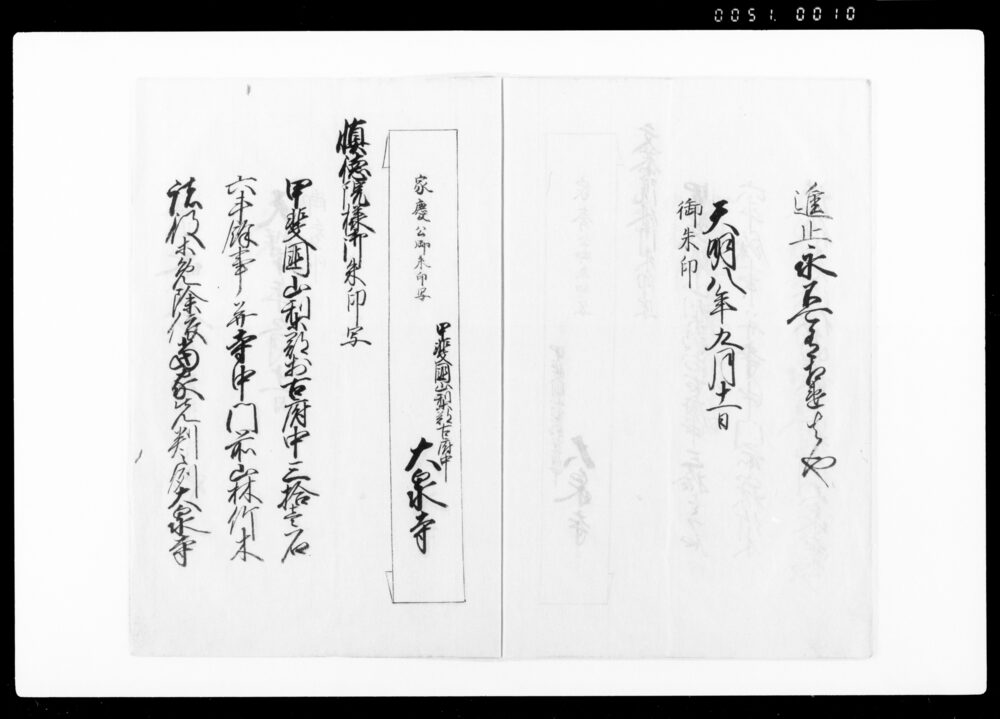 0051.0010
進止永不可有相違者也
天明八年九月十一日
御朱印
家慶公御朱印写
甲斐国山梨郡古府中
大泉寺
慎徳院様御朱印写
甲斐国山梨郡於古府中三拾壱石
六斗餘事并寺中門前山林竹木
諸役等免除依当家先判之例大泉寺